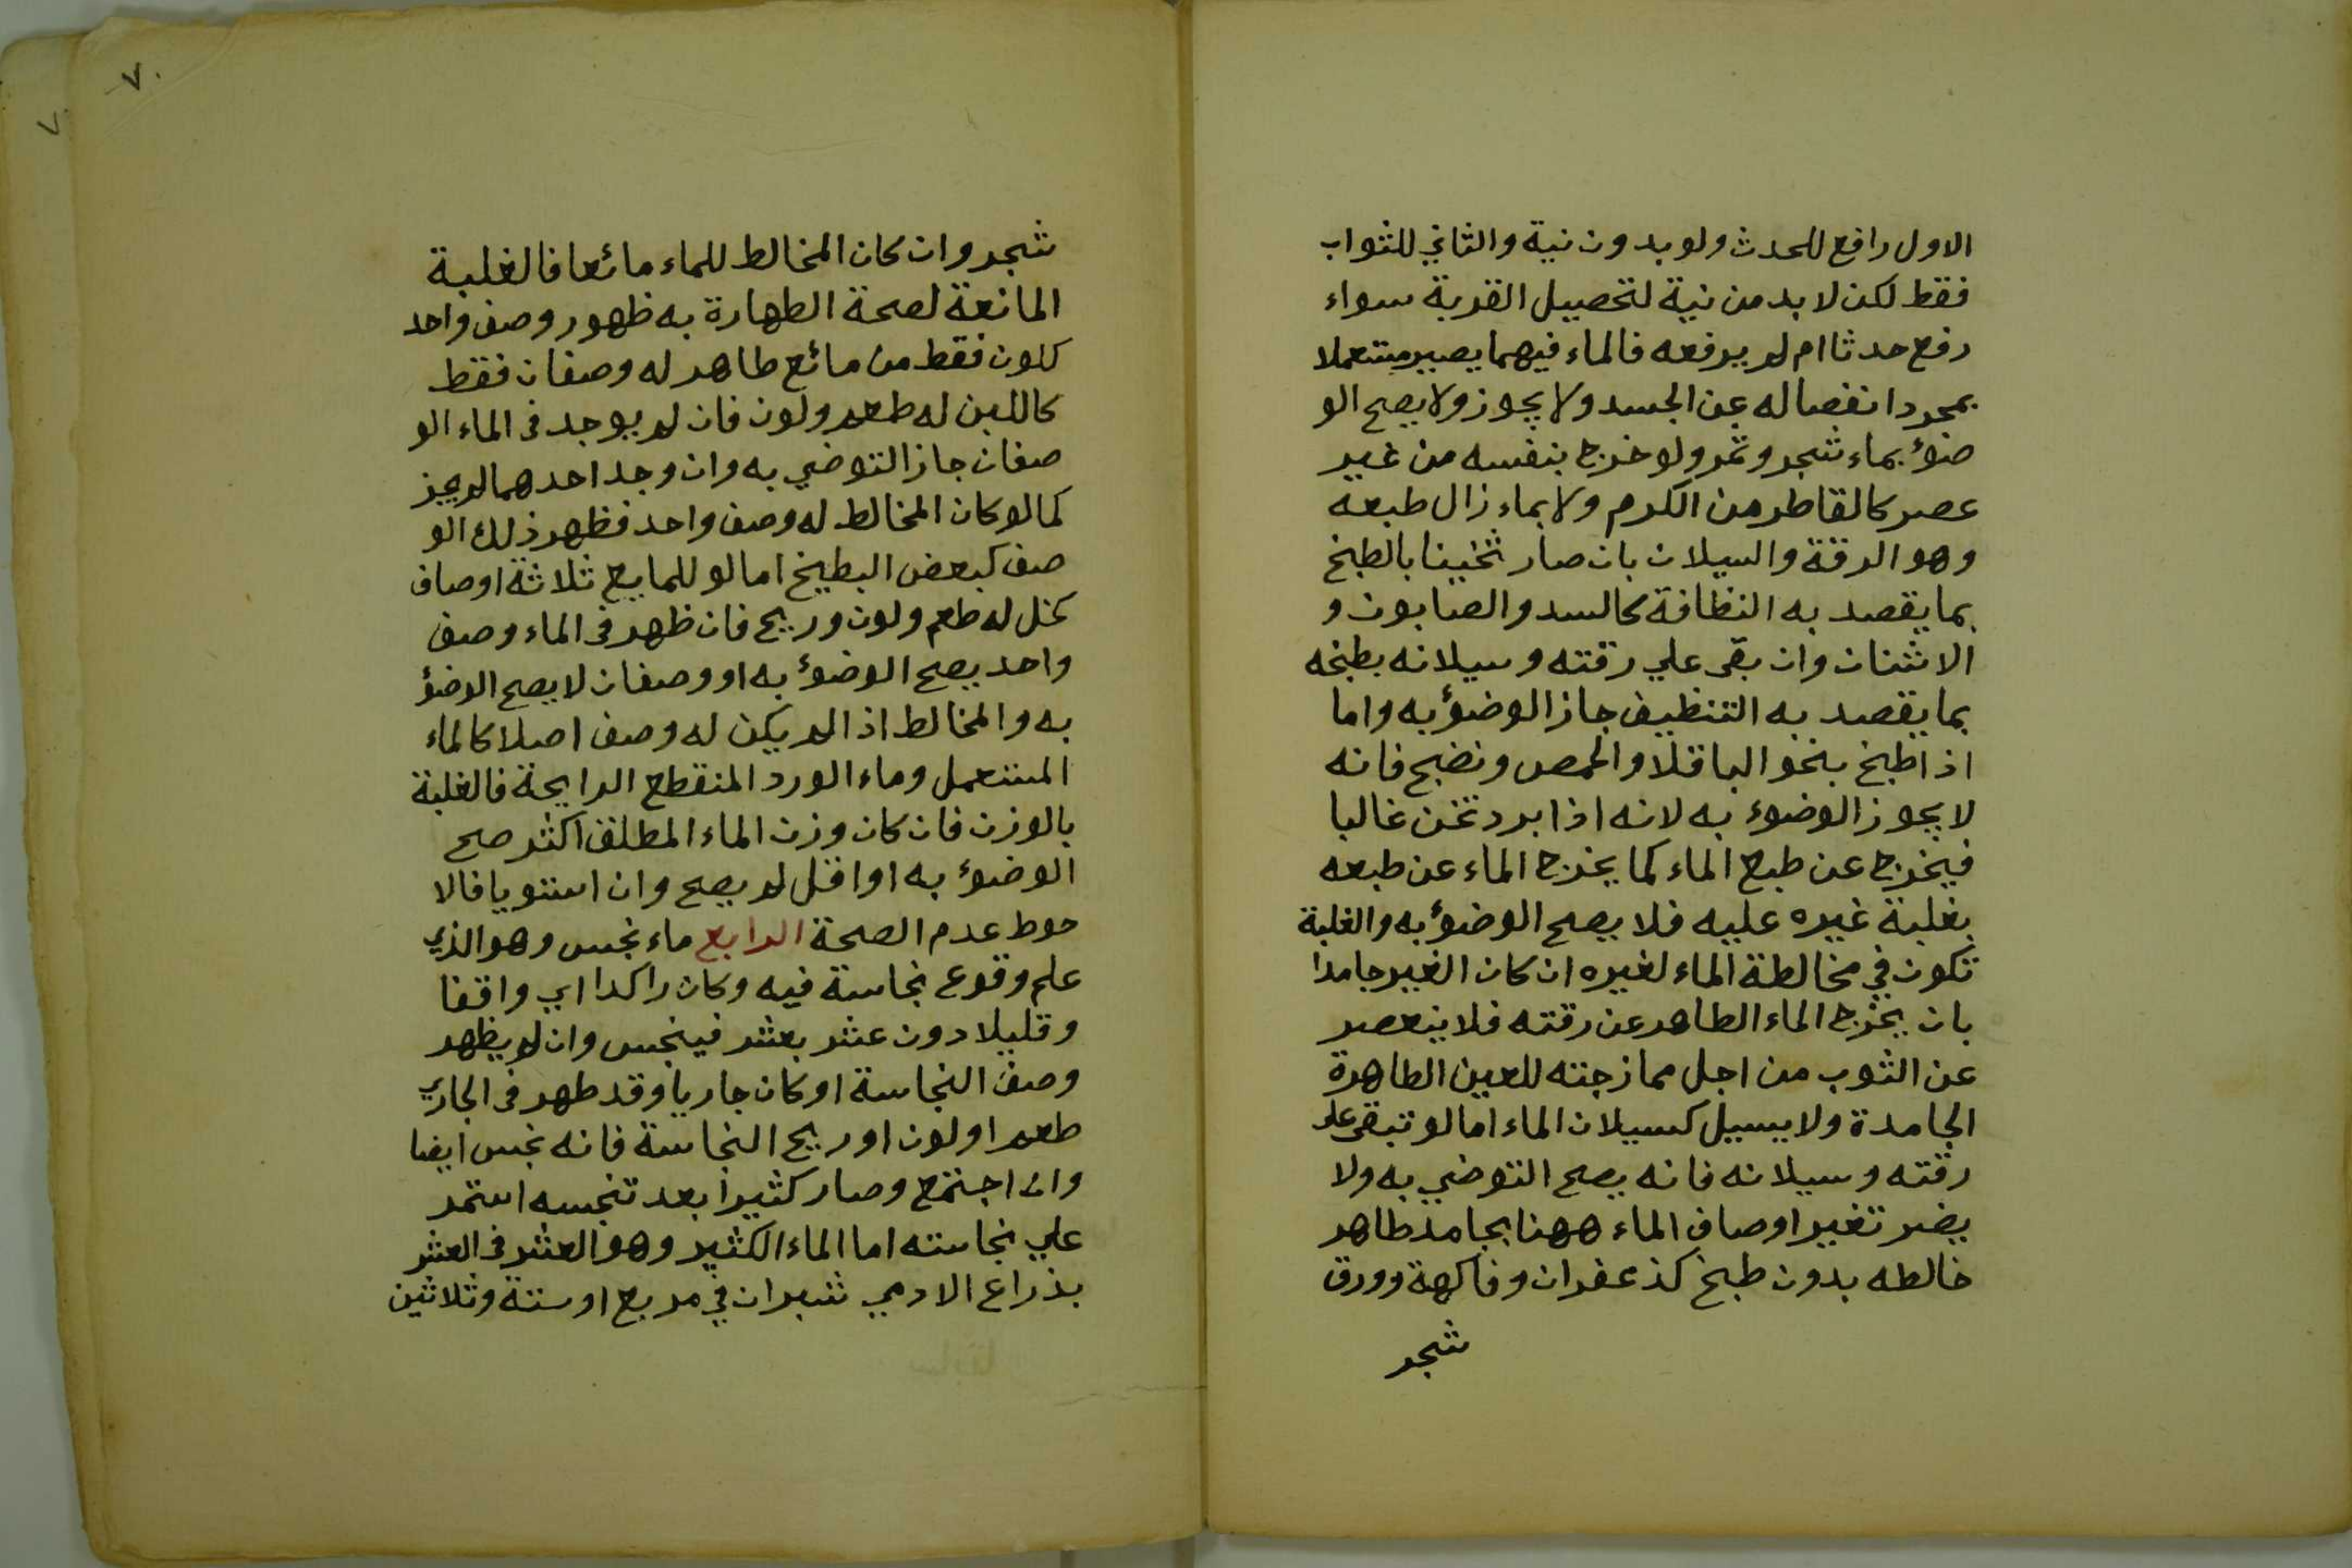 الاول رافع للحدث ولو بدون نية والثاني للثواب
فقط لكن لا بد من نية لتحصيل القربة سواء
رفع حدثا ام لم يرفعه فالماء فيهما يصير مستعملا
بمجرد انفصاله عن الجسد ولا يجوز ولا يصح الو
ضؤ بماء شجر وثمر ولو خرج بنفسه من غير
عصر كالقاطر من الكرم ولا بماء زال طبعه
وهو الرقة والسيلان بان صار ثخينا بالطبخ
بما يقصد به النظافة كالسدر والصابون و
الاشنان وان بقى علي رقته وسيلانه بطبخه
بما يقصد به التنظيف جاز الوضؤ به واما
اذا طبخ بنحو الباقلا والحمص ونضج فانه
لا يجوز الوضوء به لانه اذا برد تخن غالبا
فيخرج عن طبع الماء كما يخرج الماء عن طبعه
بغلبة غيره عليه فلا يصح الوضؤ به والغلبة
تكون في مخالطة الماء لغيره ان كان الغير جامدا
بان يخرج الماء الطاهر عن رقته فلا ينعصر
عن الثوب من اجل ممازجته للعين الطاهرة
الجامدة ولا يسيل كسيلان الماء اما لو تبقى على
رقته وسيلانه فانه يصح التوضي به ولا
يضر تغير اوصاف الماء ههنا بجامد طاهر
خالطه بدون طبخ كزعفران وفاكهة وورق
شجر
٧٠
٧
شجر وان كان المخالط للماء مائعا فالغلبة
المانعة لصحة الطهارة به ظهور وصف واحد
كلون فقط من مائع طاهر له وصفان فقط
كاللبن له طعم ولون فان لم يوجد فى الماء الو
صفان جاز التوضي به وان وجد احدهما لم يجز
كما لو كان المخالط له وصف واحد فظهر ذلك الو
صف كبعض البطيخ اما لو للمايع ثلاثة اوصاف
كخل له طعم ولون وريح فان ظهر فى الماء وصف
واحد يصح الوضؤ به او وصفان لا يصح الوضؤ
به والمخالط اذا لم يكن له وصف اصلا كالماء
المستعمل وماء الورد المنقطع الرايحة فالغلبة
بالوزن فان كان وزن الماء المطلق اكثر صح
الوضؤ به او اقل لم يصح وان استويا فالا
حوط عدم الصحة الرابع ماء نجس وهو الذي
علم وقوع نجاسة فيه وكان راكدا اي واقفا
وقليلا دون عشر بعشر فينجس وان لم يظهر
وصف النجاسة او كان جاريا وقد ظهر فى الجاري
طعم او لون او ريح النجاسة فانه نجس ايضا
وان اجتمع وصار كثيرا بعد تنجسه استمر
علي نجاسته اما الماء الكثير وهو العشر فى العشر
بذراع الادمي شبران في مربع او ستة وثلاثين